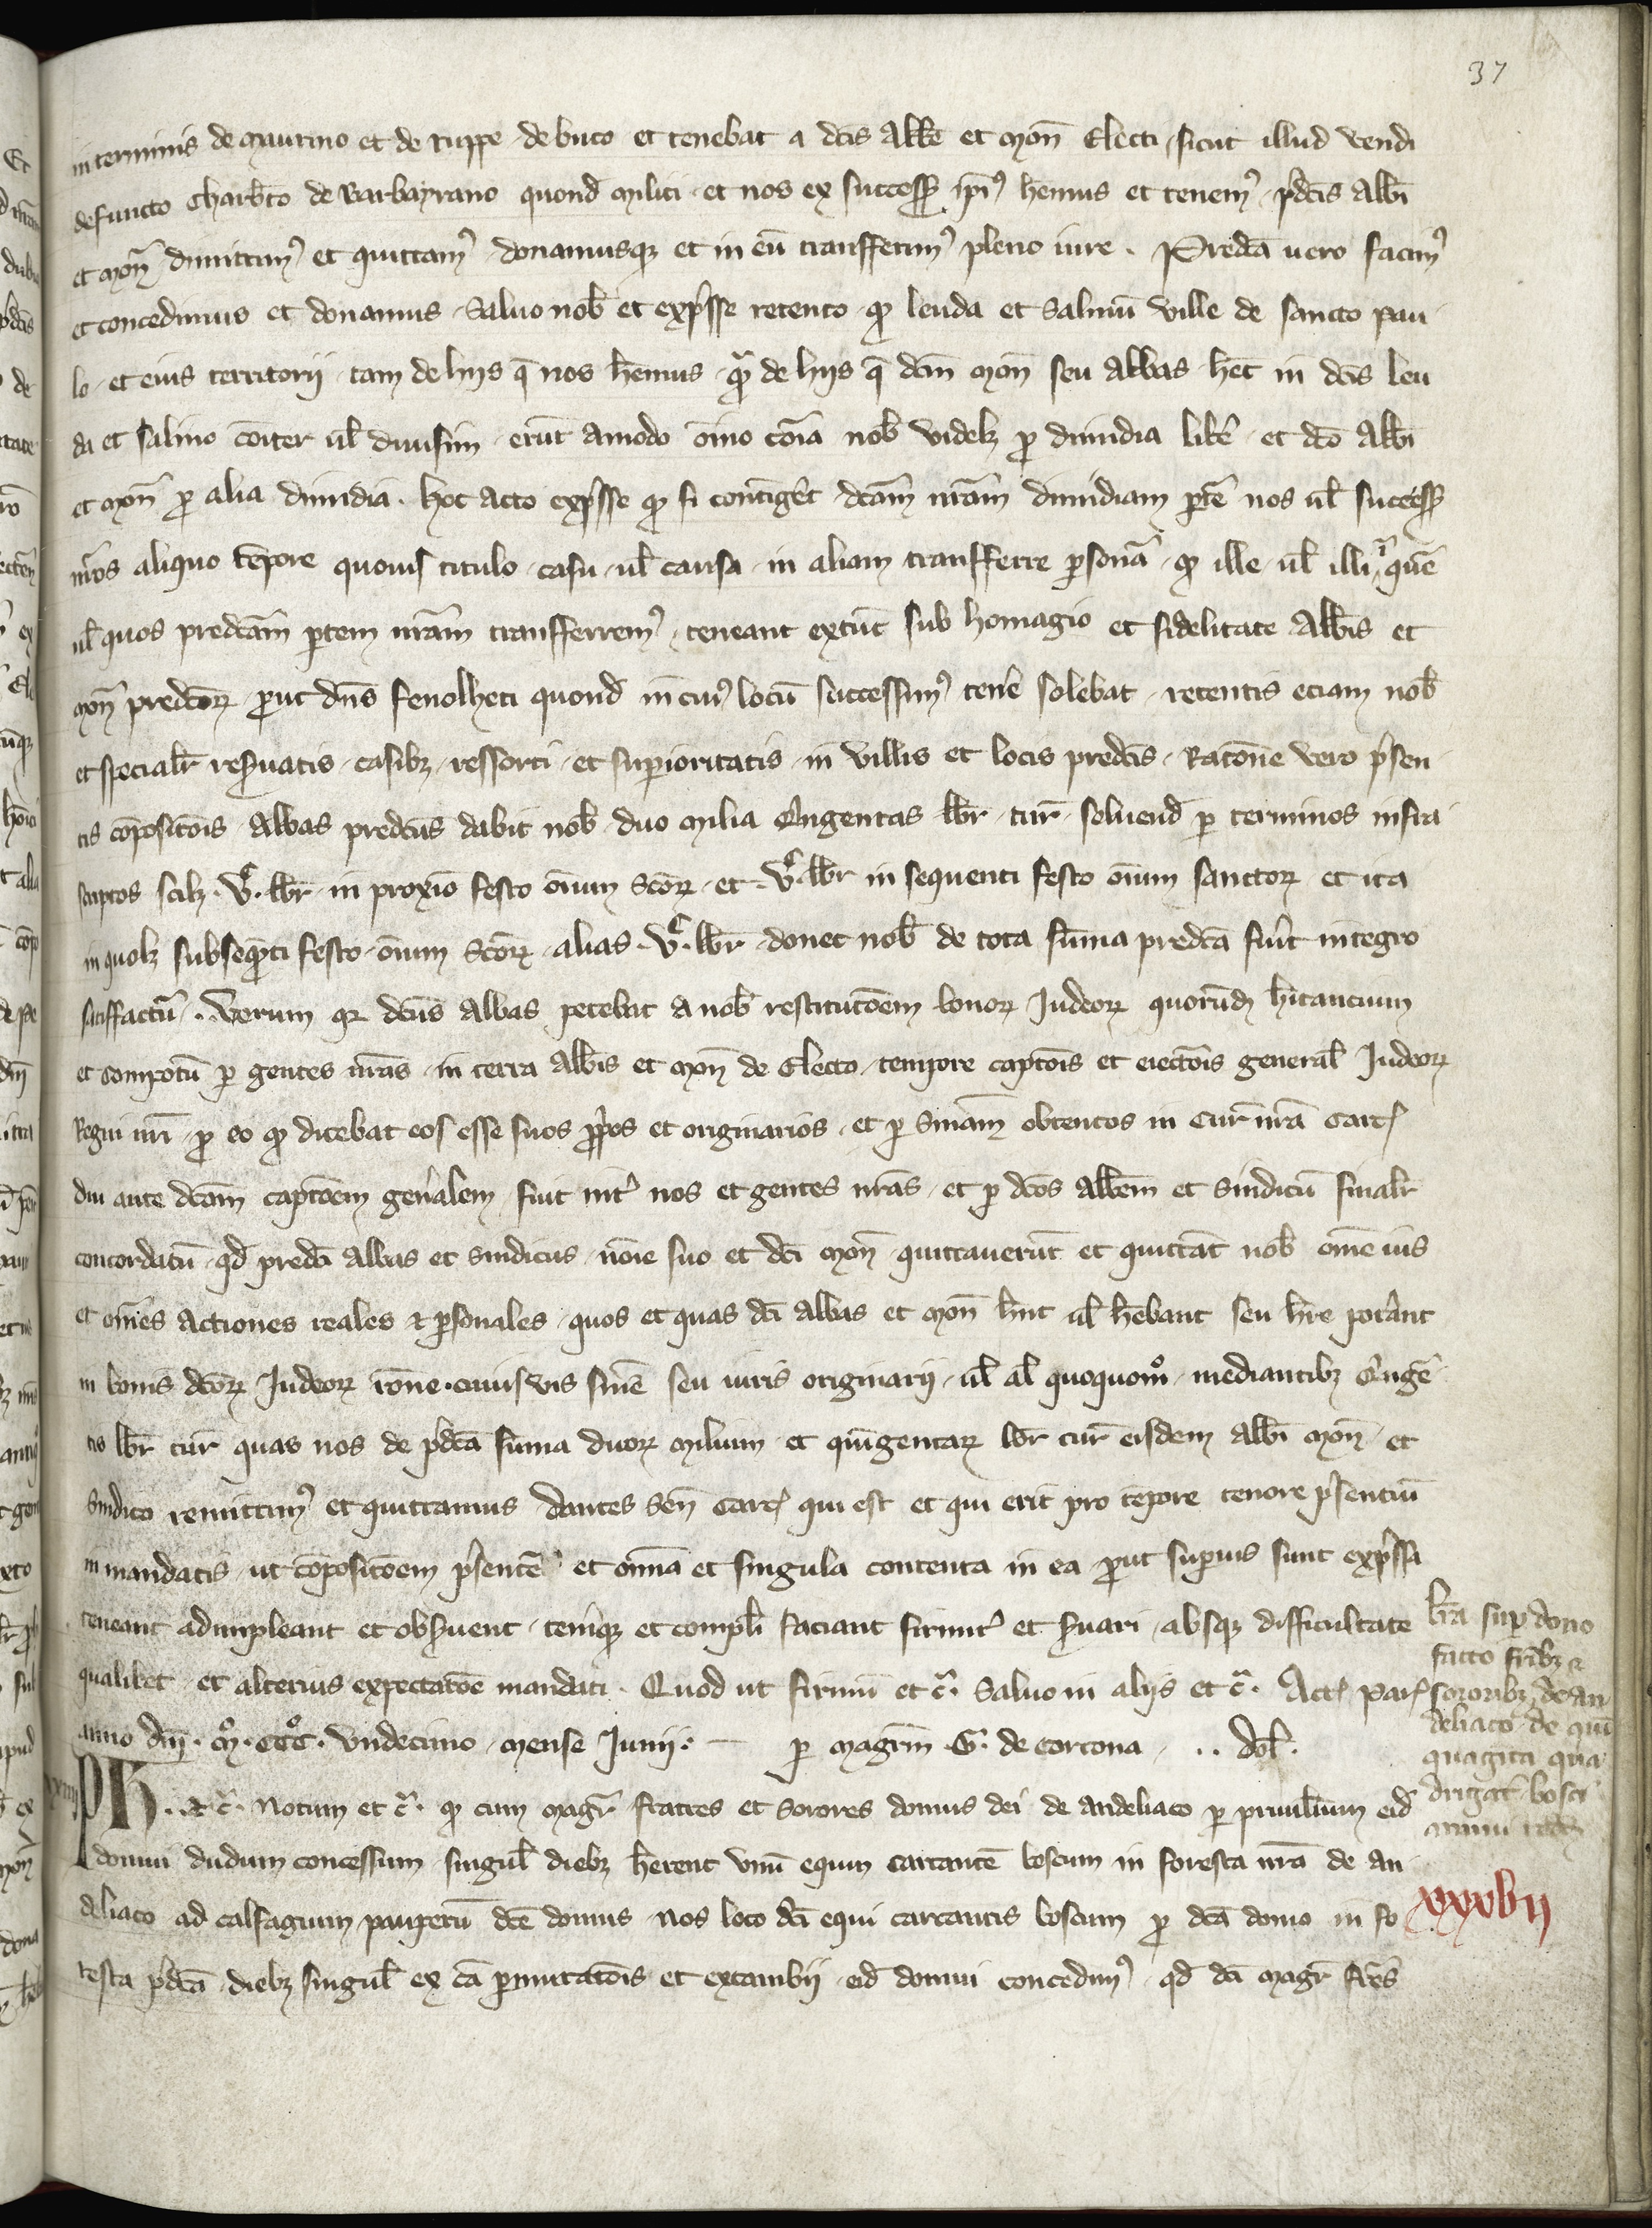 37
in terminis de Maurino et de ruppe de buco et tenebat a dc̄is Abb̄e et Mon̄ Electi sicut illud vendi
defuncto Charb̄to de Barbayrano quond̄ militi et nos ex success̄ ip̄iꝰ hēmus et tenemꝰ p̄dc̄is Abb̄i
et mon̄ dimittimꝰ et quittamꝰ donamusqꝫ et in eū transferimꝰ pleno iure . Predc̄a uero facimꝰ
et concedimus et donamus saluo nob̄ et exp̄sse retento qꝫ leuda et salinū ville de sancto pau
lo et eius territorij tam de hijs q̄ nos hēmus qᷓ de hijs q̄ dc̄m mon̄ seu Abbas hēt in dc̄is leu
da et salino cōiter ul̄ diuisim erūt amodo oīno cōia nob̄ videlꝫ ꝓ dimidia lib̄e et dc̄o Abb̄i
et mon̄ ꝓ alia dimidia . hoc acto exp̄sse qꝫ si contiḡet dc̄am nr̄am dimidiam ꝑtē nos ul̄ success̄
nr̄os aliquo tēpore quouis titulo casu ul̄ causa in aliam transferre ꝑsonā qꝫ ille ul̄ illi ī quē
ul̄ quos predc̄am ꝑtem nr̄am transferremꝰ teneant extūc sub homagio et fidelitate Abb̄is et
mon̄ predc̄orꝝ ꝓut dn̄s fenolheti quond̄ in cuiꝰ locū successimꝰ ten̄e solebat retentis eciam nob̄
et specialr̄ res̄uatis casibꝫ ressorti et suꝑioritatis in villis et locis predc̄is . Racōne vero p̄sen
tis cōpositōis Abbas predc̄us dabit nob̄ duo milia Qͥngentas lbr̄ tur̄ soluend̄ ꝑ terminos infra
scriptos scilꝫ . vᶜ . lbr̄ in proxīo festo oīum Sc̄orꝝ et . vᶜ . lbr̄ in sequenti festo oīum sanctorꝝ et ita
in quolꝫ subseq̄nti festo oīum Sc̄orꝝ alias . vᶜ . lbr̄ donec nob̄ de tota sūma predc̄a fūit integro
satiffactū . Verum qꝛ dc̄us Abbas petebat a nob̄ restitucōem bonorꝝ Judeorꝝ quorūdꝫ hītancium
et compotū ꝑ gentes nr̄as in terra Abb̄is et Mon̄ de Electo tempore captōis et eiectōis general̄ Judeorꝝ
Regni nr̄i ꝓ eo qꝫ dicebat eos esse suos ꝓpͥos et originarios et ꝑ sn̄iam obtentos in Cur̄ nr̄a Carc̄
diu ante dc̄am captōem gen̄alem fuit int̄ nos et gentes nr̄as et ꝑ dc̄os Abb̄em et Sindicū finalr̄
concordatū qd̄ predc̄i Abbas et sindicus nōie suo et dc̄i mon̄ quittauerūt et quittāt nob̄ om̄e ius
et om̄es actiones reales ⁊ ꝑsonales quos et quas dc̄i abbas et mon̄ hn̄t ul̄ hēbant seu hr̄e pot̄ant
in bonis dc̄orꝝ Judeorꝝ rōne cuiusvis sn̄ie seu iuris originarij ul̄ al̄ quoquomͦ mediantibꝫ Qͥngē
tis lbr̄ tur̄ quas nos de p̄dc̄a sūma duorꝝ milium et quīgentarꝝ lbr̄ tur̄ eisdem abb̄i mon̄ et
Sindico remittimꝰ et quittamus dantes sen̄ Carc̄ qui est et qui erit pro tēpore tenore p̄sentiū
in mandatis ut cōpositōem p̄sentē et om̄ia et singula contenta in ea ꝓut suꝑius sunt exp̄ssa
teneant adimpleant et obs̄uent teniqꝫ et compl̄i faciant firmit̄ et s̄uari absqꝫ difficultate
qualibet et alterius expectatōe mandati . Quod ut firmū et c̄ . Saluo in alijs et c̄ . Act̄ par̄
anno dn̄i . Mͦ . CCCͦ . vndecimo mense Junij . ꝑ Magr̄m . G . de Cortona . . dol̄ .
Ph̄ . . et c̄ . Notum et c̄ . qꝫ cum magr̄ fratres et Sorores domus dei de andeliaco ꝑ priuil̄ium eid̄
domui dudum concessum singul̄ diebꝫ hērent vnū equm carcantē boscum in foresta nr̄a de an
deliaco ad calfagium pauꝑerū dc̄e domus nos loco dc̄i equi carcantis boscum ꝓ dc̄a domo in fo
resta p̄dc̄a diebꝫ singul̄ ex cā ꝑmutatōis et excambij eid̄ domui concedimꝰ qd̄ dc̄i magr̄ fr̄es
lr̄a suꝑ dono
facto fr̄ibꝫ ⁊
sororibꝫ de an
deliaco de quī
quagīta qua
drigat̄ bosci
xxxvij